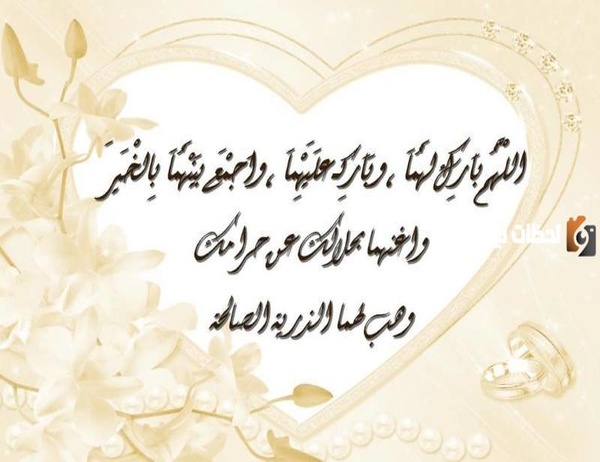 اللَّهُمَّ بَارِكْ لَهُمَا ، وَبَارِكْ عَلَيْهِمَا ، وَاجْمَعْ بَيْنَهُمَا بِالْخَيْرَ
واغنهما بحلالك عن حرامك
وهب لهما الذرية الصالحة
لحظات